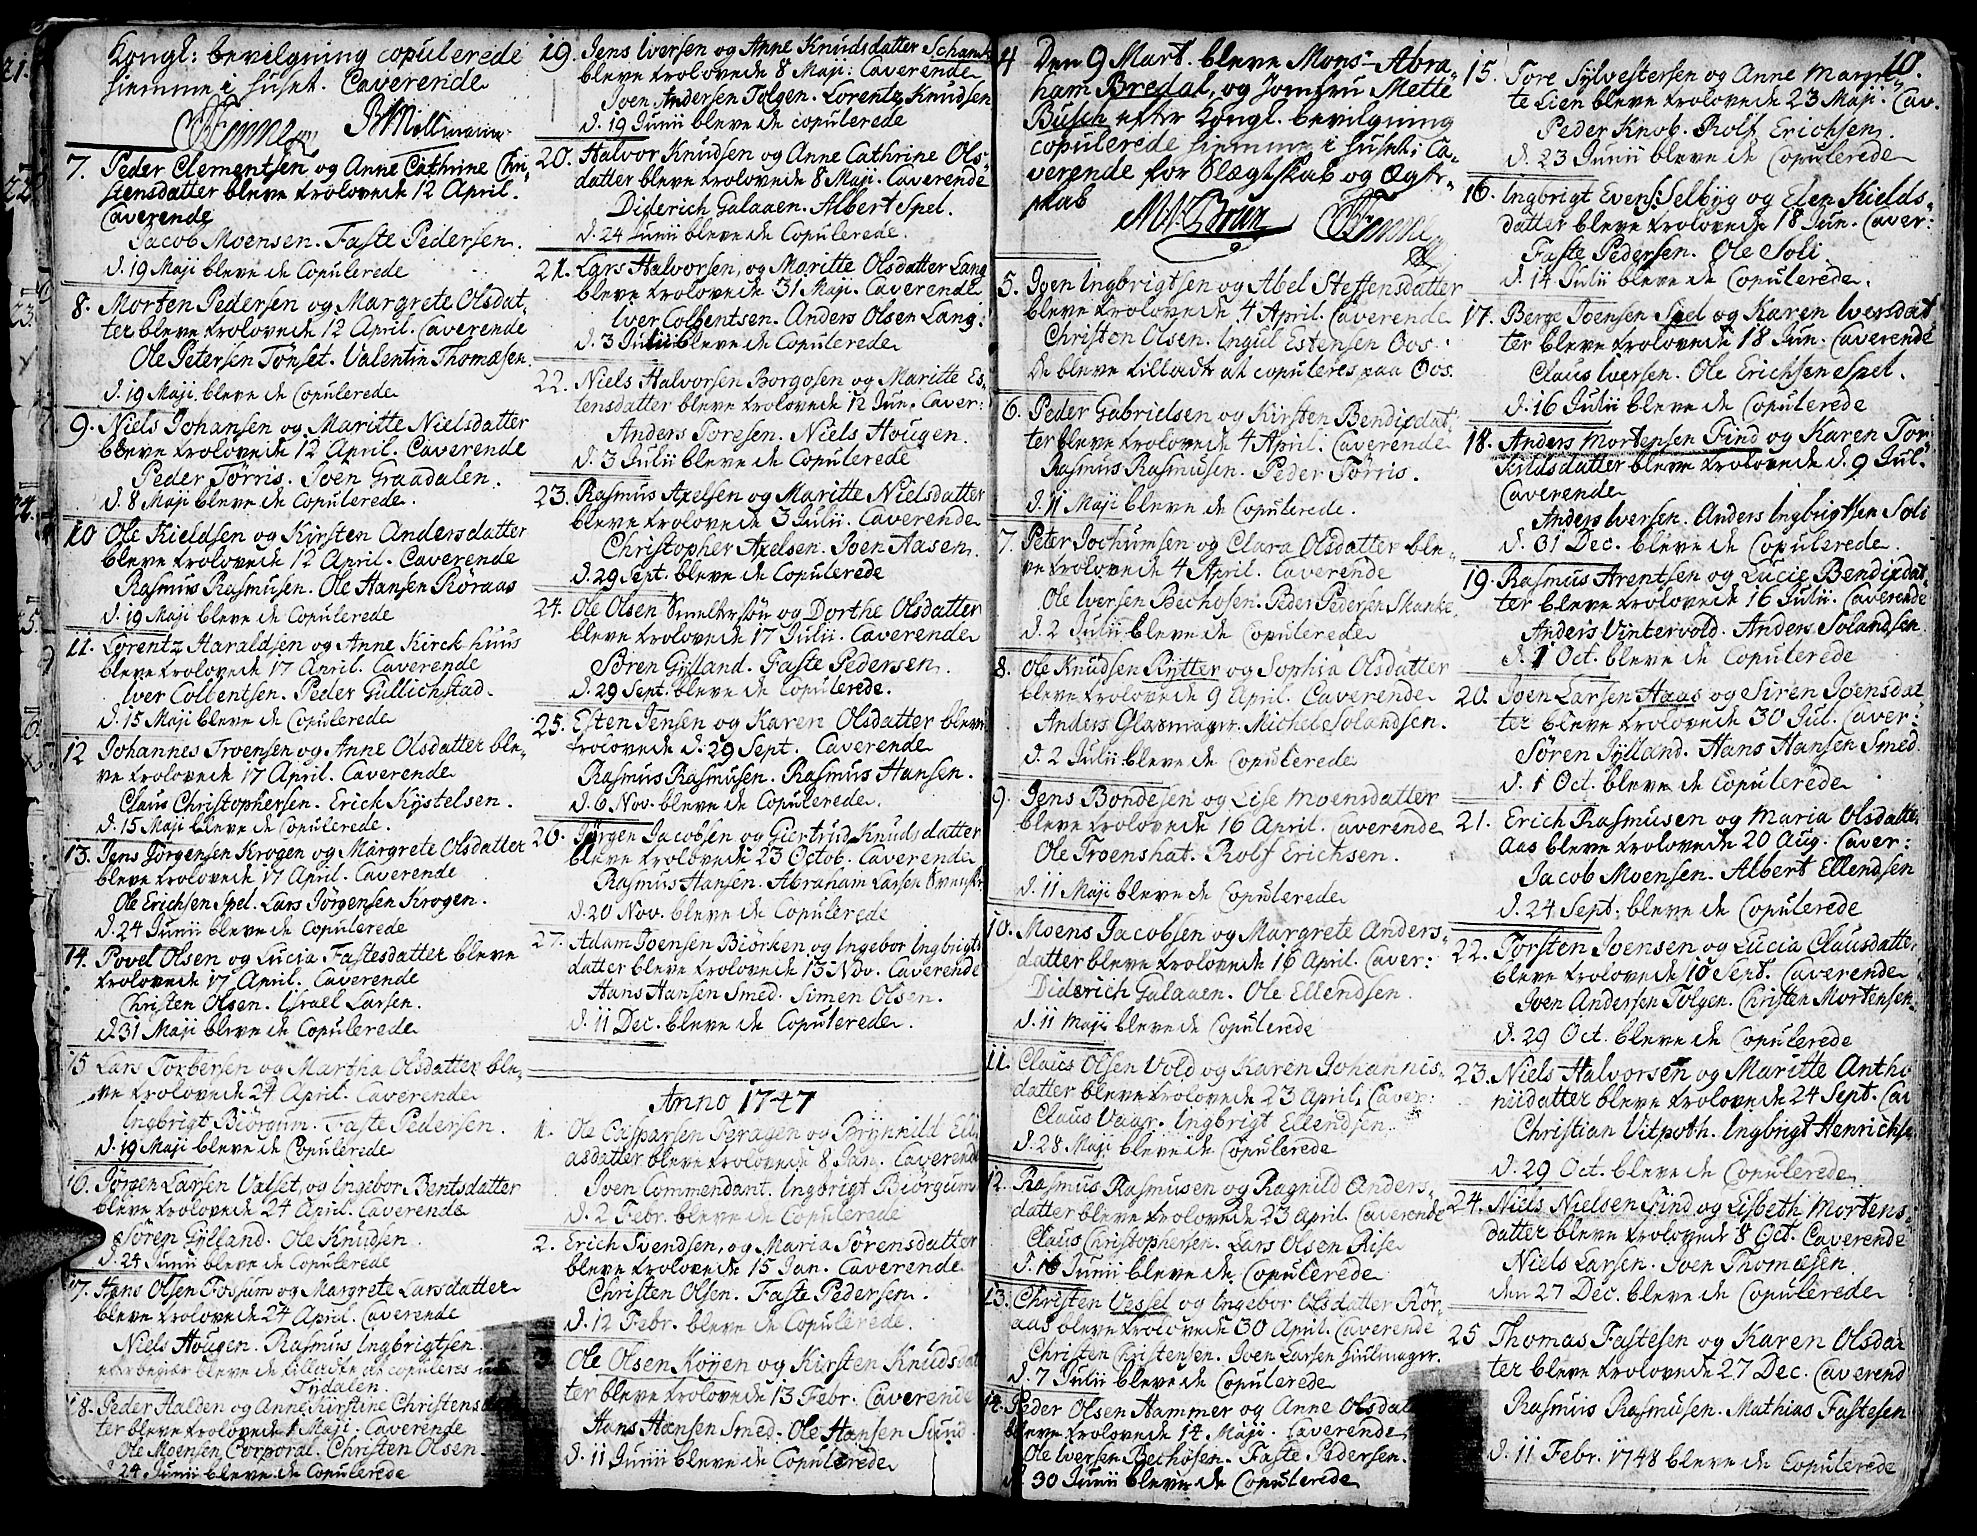 Kongl: bevilgning copulerede
hiemme i huset. Caverende
7. Peder Clementsen og Anne Cathrine Chri-
stensdatter bleve trolovede 12 April.
Caverende
Jacob Moensen. Faste Pedersen.
d. 19 Maji bleve de Copulerede
8. Morten Pedersen og Margrete Olsdat-
ter bleve trolovede 12 April. Caverende
Ole Petersen Tønset. Valentin Thomæsen.
d. 19 Maji bleve de Copulerede
9. Niels Johansen og Maritte Nielsdatter
bleve trolovede 12 April. Caverende
Peder Tørris. Joen Graadalen.
d. 8 Maji bleve de Copulerede.
10 Ole Kieldsen og Kirsten Andersdatter
bleve trolovede 12 April. Caverende
Rasmus Rasmusen. Ole Hansen Röraas
d. 19 Maji bleve de Copulerede
11. Lorentz Haraldsen og Anne Kirck huus
bleve trolovede 17 April. Caverende
Iver Colbentsen. Peder Gullichstad.
d. 15 Maji bleve de Copulerede
12 Johannes Troensen og Anne Olsdatter ble-
ve trolovede 17 April. Caverende
Claus Christophersen. Erick Kystelsen.
d. 15 Maji bleve de Copulerede.
13. Jens Jörgensen Krogen og Margrete Olsdatter
bleve trolovede 17 April. Caverende
Ole Erichsen Spel. Lars Jörgensen Krogen.
d. 24 Junii bleve de Copulerede
14. Povel Olsen og Lucia Fastesdatter bleve
trolovede 17 April. Caverende
Christen Olsen. Israel Larsen.
d. 31 Maji bleve de Copulerede
15 Lars Torbersen og Martha Olsdatter ble-
ve trolovede 24 April. Caverende
Ingbrigt Biörgum. Faste Pedersen.
d. 19 Maji bleve de Copulerede
16. Jörgen Larsen Valset, og Ingebor Bentsdatter
bleve trolovede 24 April. Caverende
Sören Gylland. Ole Knudsen.
d. 24 Junii bleve de Copulerede
17. Hans Olsen Fossum og Margrete Larsdatter
bleve trolovede 24 April. Caverende
Niels Hougen. Rasmus Ingbrigtsen.
efter begiær bleve de tilladte at copuleres
Tydalen.
18. Peder Halden og Anne Kirstine Christens
ter bleve trolovede 1 Maji. Caverende
Ole Moensen Corporal. Christen Olsen.
d. 24 Junii bleve de Copulerede
19. Jens Iversen og Anne Knudsdatter Schanke
bleve trolovede 8 Maji. Caverende
Joen Andersen Tolgen. Lorentz Knudsen
d. 19 Junii bleve de copulerede
20. Halvor Knudsen og Anne Cathrine Ols-
datter bleve trolovede 8 Maji. Caverende
Diderich Galaaen. Albert Spel.
d. 24 Junii bleve de Copulerede.
21. Lars Halvorsen, og Maritte Olsdatter Lang
bleve trolovede 31 Maji. Caverende
Iver Colbentsen. Anders Olsen Lang:
d. 3 Julii bleve de Copulerede
22. Niels Halvorsen Borgosen og Maritte Es-
tensdatter bleve trolovede 12 Jun. Caver:
Anders Toresen. Niels Hougen.
d. 3 Julii bleve de Copulerede
23. Rasmus Axelsen og Maritte Nielsdatter
bleve trolovede 3 Julii. Caverende
Christopher Axelsen. Joen Aasen.
d. 29 Sept. bleve de Copulerede
24. Ole Olsen Smeltersön og Dorthe Olsdatter
bleve trolovede 17 Julii. Caverende
Sören Gylland. Faste Pedersen.
d. 29 Sept. bleve de Copulerede.
25. Esten Jensen og Karen Olsdatter bleve
trolovede d. 29 Sept. Caverende
Rasmus Rasmusen. Rasmus Hansen.
d. 6 Nov. bleve de Copulerede.
26. Jörgen Jacobsen og Giertrud Knudsdatter
bleve trolovede 23 Octob. Caverende
Rasmus Hansen. Abraham Larsen Svensk
d. 20 Nov. bleve de Copulerede
27. Adam Joensen Biörken og Ingebor Ingbrigts
datter bleve trolovede 13 Nov. Caverende
Hans Hansen Smed. Simen Olsen.
d. 11 Dec. bleve de Copulerede.
Anno 1747
1. Ole Casparsen Feragen og Brynnild Eli-
asdatter bleve trolovede 8 Jan. Caverende
Joen Commendant. Ingbrigt Biörgum
d. 2 Febr. bleve de Copulerede
2. Erich Svendsen, og Maria Sörensdatter
bleve trolovede 15 Jan. Caverende
Christen Olsen. Faste Pedersen.
d. 12 Febr. bleve de Copulerede
3 Ole Olsen Koyen og Kirsten Knudsdat
ter bleve trolovede 13 Febr. Caverende
Hans Hansen Smed. Ole Hansen Sund
d. 11 Junii bleve de Copulerede
4 Den 9 Mart. bleve Mons- Abra-
ham Bredal, og Jomfru Mette
Busch efter Kongl. bevilgning
copulerede hiemme i huset; Ca-
verende for Slægtskab og Ægte-
skab
5. Joen Ingbrigtsen og Abel Steffensdatter
bleve trolovede 4 April. Caverende
Christen Olsen. Ingul Estensen Oos.
De bleve tilladt at copuleres paa Oos.
6. Peder Gabrielsen og Kirsten Bendixdat-
ter bleve trolovede 4 April. Caverende
Rasmus Rasmusen. Peder Tørris.
d. 11 Maji bleve de Copulerede.
7. Peter Jochumsen og Clara Olsdatter ble-
ve trolovede 4 April. Caverende
Ole Iversen Bechosen. Peder Pedersen Skanke.
d. 2 Julii bleve de Copulerede
8. Ole Knudsen Rytter og Sophia Olsdatter
bleve trolovede 9 April. Caverende
Anders Glasmager. Michel Solandsen.
d. 2 Julii bleve de Copulerede
9. Jens Bondesen og Lise Moensdatter
bleve trolovede 16 April. Caverende
Ole Troenshat. Rolf Erichsen.
d. 11 Maji bleve de Copulerede
10. Moens Jacobsen og Margrete Anders-
datter bleve trolovede 16 April. Caver:
Diderich Galaaen. Ole Ellendsen.
d. 11 Maji bleve de Copulerede
11. Claus Olsen Vold og Karen Johannis-
datter bleve trolovede 23 April; Caver:
Claus Vaar. Ingbrigt Ellendsen.
d. 28 Maji bleve de Copulerede
12. Rasmus Rasmusen og Ragnild Anders-
datter bleve trolovede 23 April. Caverende
Claus Christophersen. Lars Olsen Rise
d. 16 Junii bleve de Copulerede
13. Christen Vessel og Ingebor Olsdatter Rör-
aas bleve trolovede 30 April. Caverende
Christen Christensen. Joen Larsen Hiulmager.
d. 7 Julii bleve de Copulerede
14. Peder Olsen Hammer og Anne Olsda
bleve trolovede 14 Maji. Caverende
Ole Iversen Bechosen. Faste Pedersen.
d. 30 Junii bleve de Copulerede
10.
15. Tore Sylvestersen og Anne Margre-
te Lien bleve trolovede 23 Maji. Cav.
Peder Knob. Rolf Erichsen.
d. 23 Junii bleve de Copulerede
16. Ingbrigt Evens: Selbyg og Elen Kields-
datter bleve trolovede 18 Jun. Caver:
Faste Pedersen. Ole Soli
d. 14 Julii bleve de Copulerede.
17. Berge Joensen Spel og Karen Iversdat
ter bleve trolovede 18 Jun. Caverende
Claus Iversen. Ole Erichsen Spel.
d. 16 Julii bleve de Copulerede
18. Anders Mortensen Find og Karen Tor-
kildsdatter bleve trolovede d. 9 Jul.
Caverende
Anders Iversen. Anders Ingbrigtsen Soli
d. 31 Dec. bleve de Copulerede.
19. Rasmus Arentsen og Lucie Bendixdat-
ter bleve trolovede 16 Julii. Caverende
Anders Vintervold. Anders Solandsen
d. 1 Oct. bleve de Copulerede
20. Joen Larsen Haas og Siren Joensdat
ter bleve trolovede 30 Jul. Caver:
Søren Jylland. Hans Hansen Smed.
d. 1 Oct. bleve de Copulerede
21. Erich Rasmusen og Maria Olsdatte
Aas bleve trolovede 20 Aug. Caver:
Jacob Moensen. Albert Ellendsen
d. 24 Sept. bleve de Copulerede
22. Torsten Joensen og Lucia Clausdatte
bleve trolovede 10 Sept. Caverende
Joen Andersen Tolgen. Christen Mortensen.
d. 29 Oct. bleve de Copulerede
23. Niels Halvorsen og Maritte Antho
niidatter bleve trolovede 24 Sept. Cav
Christian Vitpoth. Ingbrigt Henrichse
d. 29 Oct. bleve de Copulerede
24. Niels Nielsen Find og Lisbeth Mortens-
datter bleve trolovede 8 Oct. Caverende
Niels Larsen. Joen Thomæsen.
den 27 Dec. bleve de Copulerede
25 Thomas Fastesen og Karen Olsdat
ter bleve trolovede 27 Dec. Caverend
Rasmus Rasmusen. Mathias Fastesen
d. 11 Febr. 1748 bleve de Copulerede